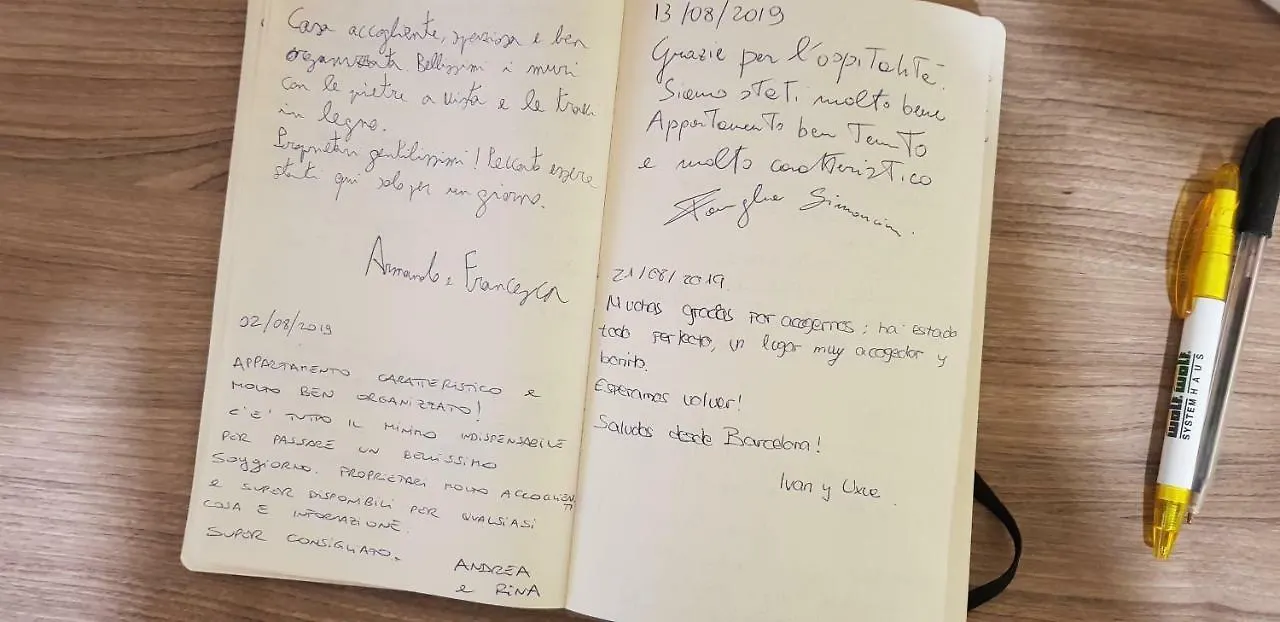 Casa accogliente, spaziosa e ben
organizzata. Bellissimi i muri
con le pietre a vista e le travi
in legno.
Proprietari gentilissimi! Peccato essere
stati qui solo per un giorno.
Armando e Francesca
02/08/2019
APPARTAMENTO CARATTERISTICO e
MOLTO BEN ORGANIZZATO!
C'E' TUTTO IL MINIMO INDISPENSABILE
PER PASSARE UN BELLISSIMO
SOGGIORNO. PROPRIETARI MOLTO ACCOGLIENTI
e SUPER DISPONIBILI PER QUALSIASI
COSA E INFORMAZIONE.
SUPER CONSIGLIATO.
ANDREA
e RINA
13/08/2019
Grazie per l'ospitalità.
Siamo stati molto bene
Appartamento ben tenuto
e molto caratteristico
Famiglia Simoncini.
21/08/2019
Muchas gracias por acogernos; ha estado
todo perfecto, un lugar muy acogedor y
bonito.
Esperamos volver!
Saludos desde Barcelona!
Ivan y
WOLF WOLF
SYSTEMHAUS